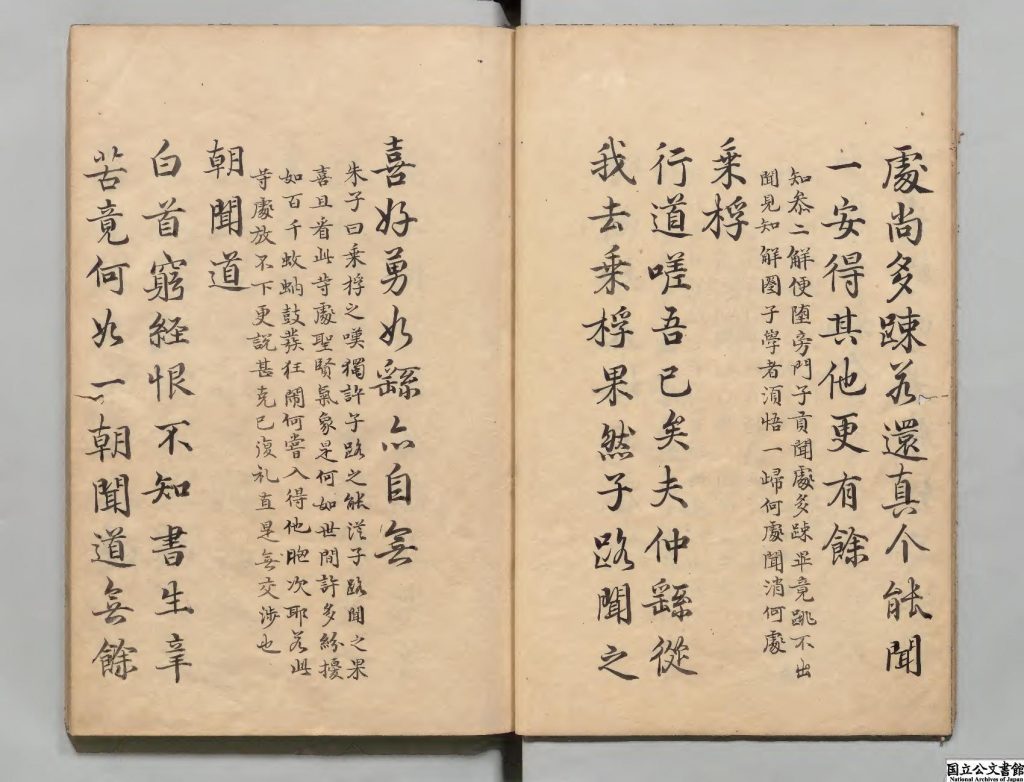 處尚多踈若還真个能聞
一安得其他更有餘
知叅二解便墮旁門子貢聞處多踈畢竟跳不出
聞見知解圈子學者須悟一歸何處聞消何處
乘桴
行道嗟吾已矣夫仲繇從
我去乘桴果然子路聞之
喜好勇如繇亦自無
朱子曰乘桴之嘆獨許子路之能從子路聞之果
喜且看此等處聖賢氣象是何如世間許多紛擾
如百千蚊蚋鼓發狂鬧何嘗入得他胞次耶若此
等處放不下更說甚克己復礼直是無交涉也
朝聞道
白首窮経恨不知書生辛
苦竟何如一朝聞道無餘
国立公文書館
National Archives of Japan